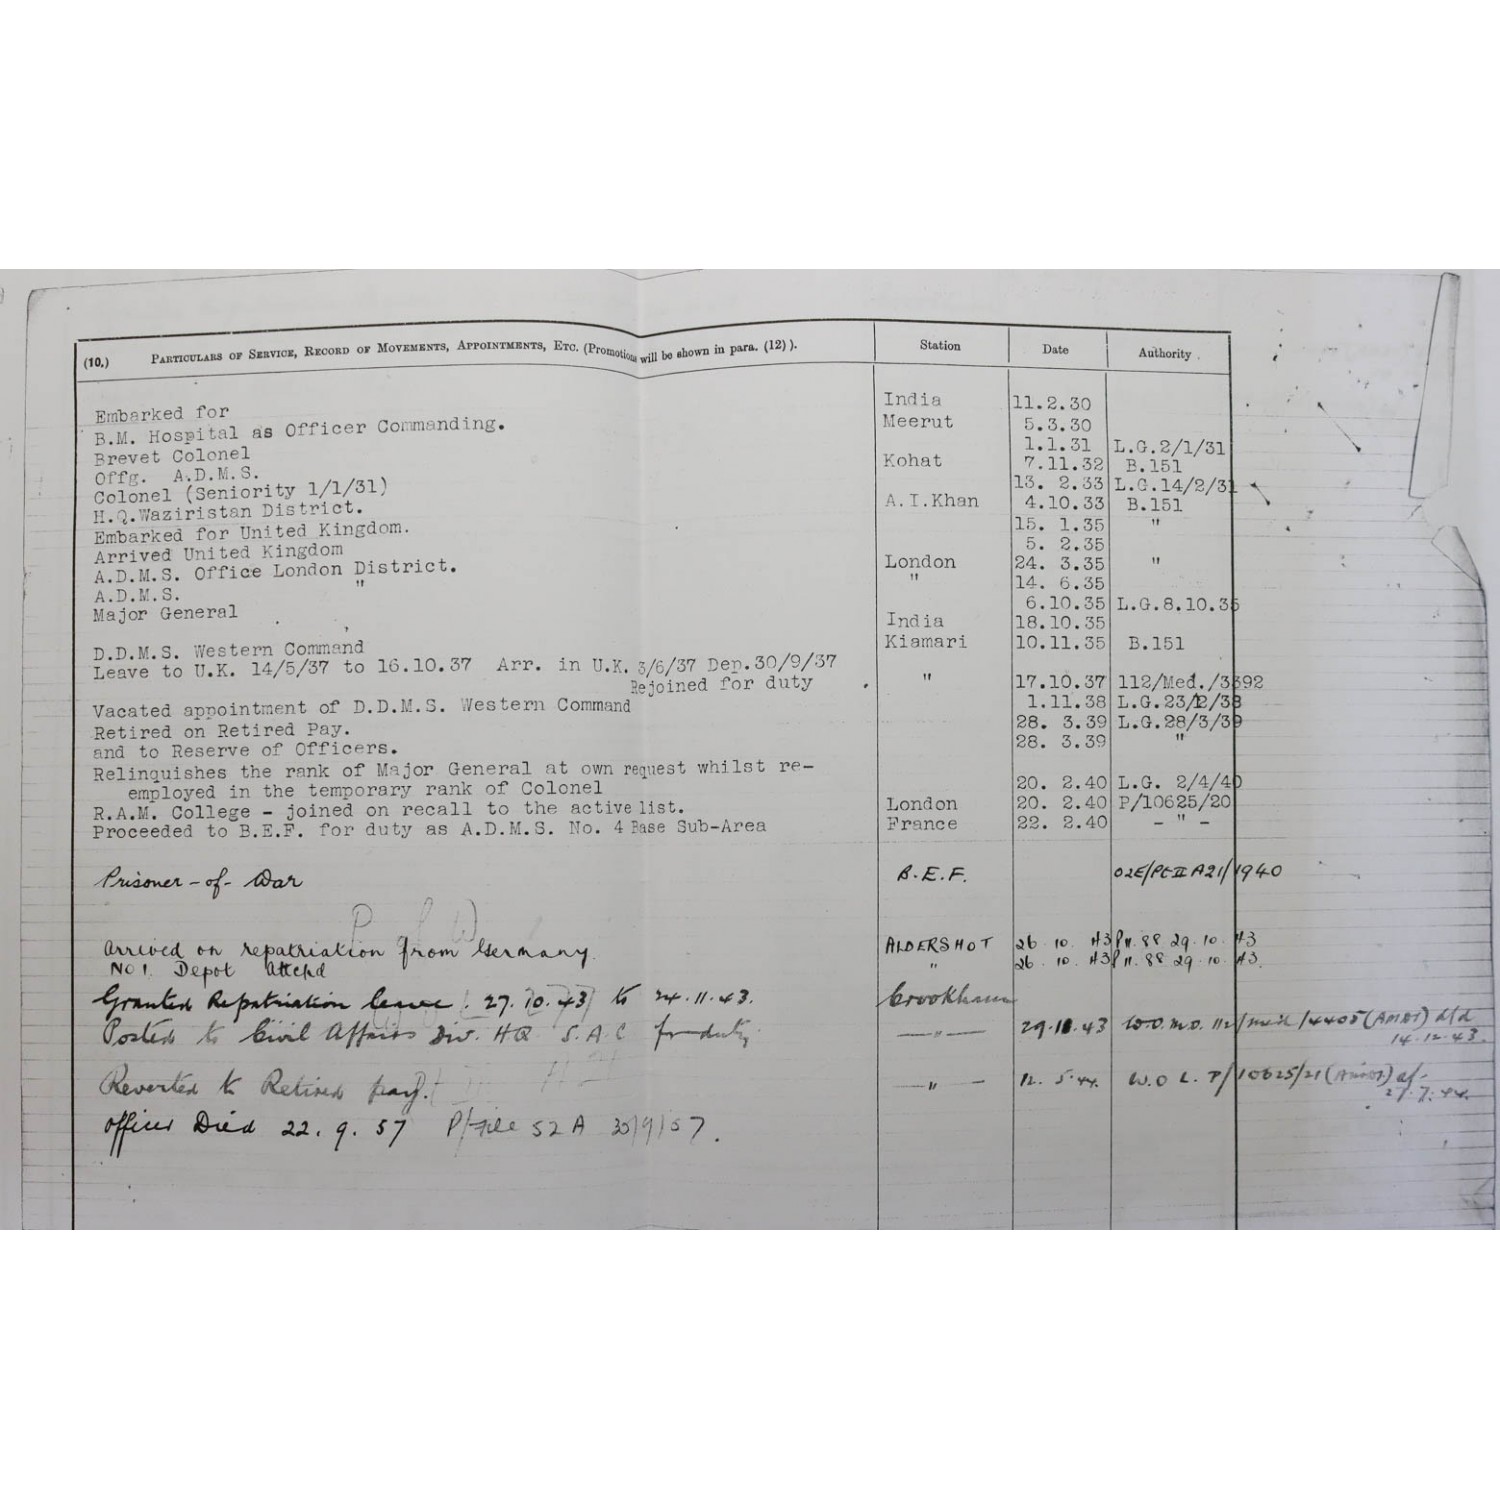 (10.) Particulars of Service, Record of Movements, Appointments, Etc. (Promotions will be shown in para. (12)). Station Date Authority
Embarked for India 11.2.30
B.M. Hospital as Officer Commanding. Meerut 5.3.30
Brevet Colonel 1.1.31 L.G.2/1/31
Offg. A.D.M.S. Kohat 7.11.32 B.151
Colonel (Seniority 1/1/31) 13. 2.33 L.G.14/2/31
H.Q.Waziristan District. A.I.Khan 4.10.33 B.151
Embarked for United Kingdom. 15. 1.35 "
Arrived United Kingdom 5. 2.35
A.D.M.S. Office London District. London 24. 3.35 "
A.D.M.S. " " 14. 6.35
Major General 6.10.35 L.G.8.10.35
India 18.10.35
D.D.M.S. Western Command Kiamari 10.11.35 B.151
Leave to U.K. 14/5/37 to 16.10.37 Arr. in U.K. 3/6/37 Dep.30/9/37
Rejoined for duty " 17.10.37 112/Med./3392
Vacated appointment of D.D.M.S. Western Command 1.11.38 L.G.23/12/38
Retired on Retired Pay. 28. 3.39 L.G.28/3/39
and to Reserve of Officers. 28. 3.39 "
Relinquishes the rank of Major General at own request whilst re-
employed in the temporary rank of Colonel 20. 2.40 L.G. 2/4/40
R.A.M. College - joined on recall to the active list. London 20. 2.40 P/10625/20
Proceeded to B.E.F. for duty as A.D.M.S. No. 4 Base Sub-Area France 22. 2.40 - " -
Prisoner-of-War B.E.F. O2E/Pt II A21/1940
P of W
Arrived on repatriation from Germany. ALDERSHOT 26.10.43 PII.88 29.10.43
No 1. Depot Attchd " 26.10.43 PII.88 29.10.43.
Granted Repatriation leave. 27.10.43 to 24.11.43. Crookham
Posted to Civil Affairs Div. HQ S.A.C for duty — " — 29.11.43 W.O.M.O. 112/Med/4405 (AMD1) d/d
14.12.43.
Reverted to Retired pay. — " — 12.5.44. W.O L. P/10625/21 (AMD1) of
27.7.44.
Officer Died 22.9.57 P/File 52A 30/9/57.